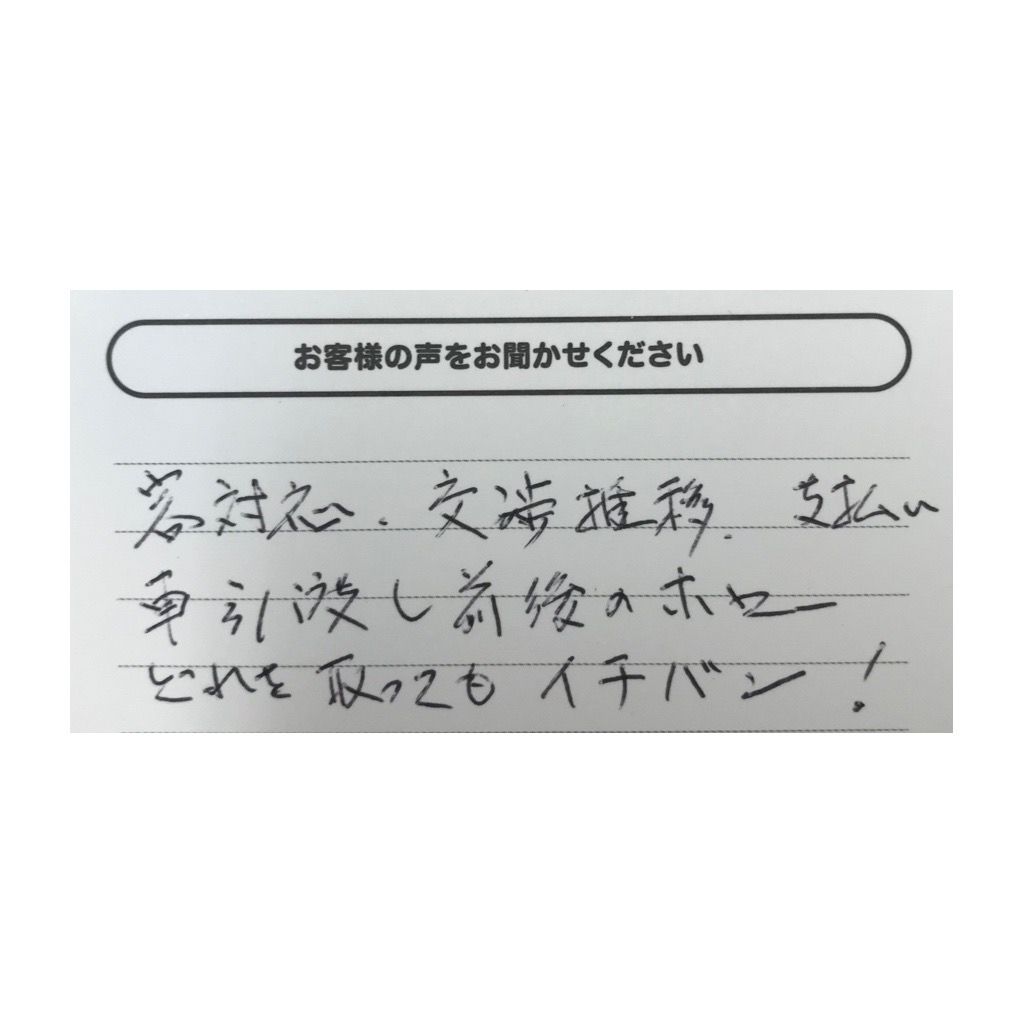 お客様の声をお聞かせください
客対応、交渉推移、支払い
車引渡し前後のホロー
どれを取ってもイチバン!